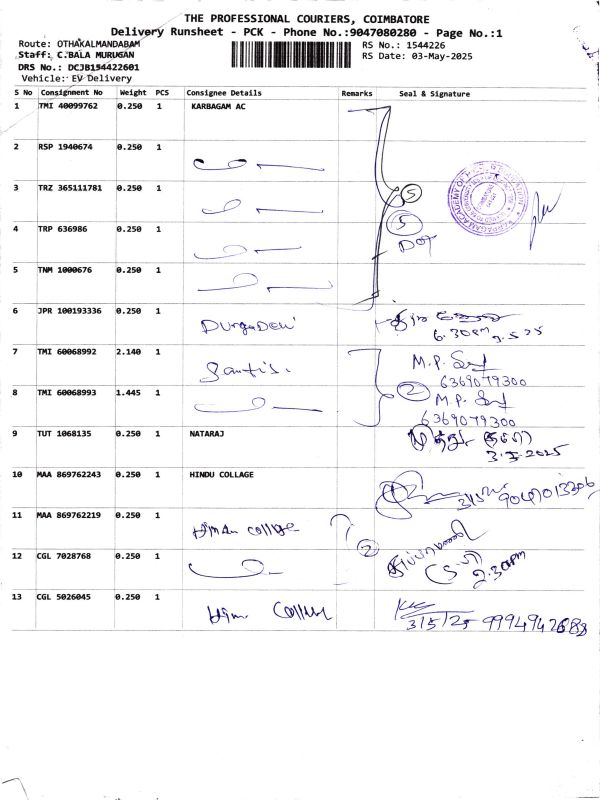 THE PROFESSIONAL COURIERS, COIMBATORE
Delivery Runsheet - PCK - Phone No.:9047080280 - Page No.:1
Route: OTHAKALMANDABAM
RS No.: 1544226
Staff: C.BALA MURUGAN
RS Date: 03-May-2025
DRS No.: DCJB154422601
Vehicle: EV Delivery
S No Consignment No Weight PCS Consignee Details Remarks Seal & Signature
1 TMI 40099762 0.250 1 KARBAGAM AC
2 RSP 1940674 0.250 1
3 TRZ 365111781 0.250 1
5
4 TRP 636986 0.250 1
5
DOT
5 TNM 1000676 0.250 1
6 JPR 100193336 0.250 1 DurgaDevi
6.30pm 3.5.25
7 TMI 60068992 2.140 1 Santis. M.P.
6369079300
8 TMI 60068993 1.445 1 2 M.P.
6369079300
9 TUT 1068135 0.250 1 NATARAJ
3.5.2025
10 MAA 869762243 0.250 1 HINDU COLLAGE
11 MAA 869762219 0.250 1 college
2
12 CGL 7028768 0.250 1
2.30pm
13 CGL 5026045 0.250 1 College
3/5/25 9994942688